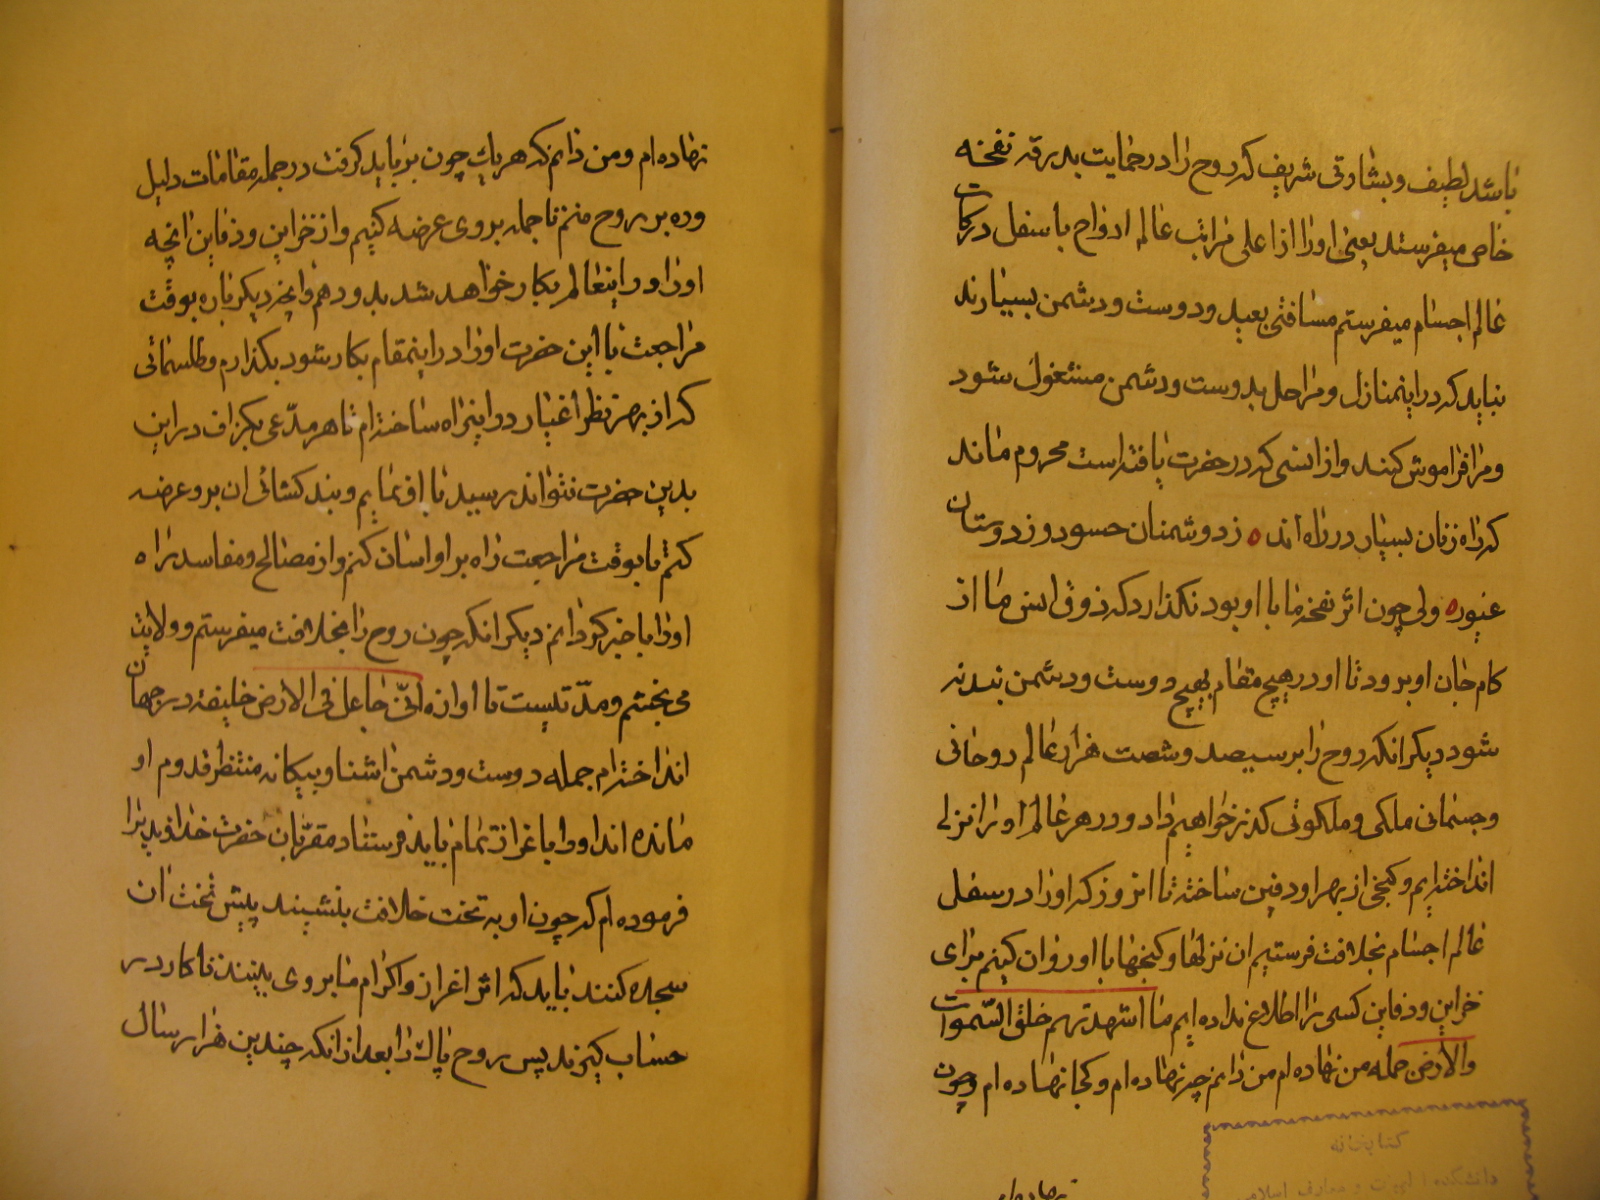 باشد لطیف و بشارتی شریف که روح را در حمایت بدرقه نفخه
خاص میفرستد یعنی اورا از اعلی مراتب عالم ارواح باسفل درکات
عالم اجسام میفرستم مسافتی بعید و دوست و دشمن بسیارند
نباید که در اینمنازل و مراحل بدوست و دشمن مشغول شود
و مرا فراموش کند و از انسی که در حضرت یافته است محروم ماند
که راه زنان بسیار در راه اند ه ز دوشمنان حسود و ز دوستان
غیور ه ولی چون اثر نفخه ما با او بود نگذارد که ذوق انس ما از
کام جان او برود تا او در هیچ مقام بهیچ دوست و دشمن نبدنه
شود دیگر انکه روح را بر سیصد و شصت هزار عالم روحانی
و جسمانی ملکی و ملکوتی گذر خواهیم داد و در هر عالم او را نزلی
انداخته ایم و گنجی از بهر او دفین ساخته تا انروز که اورا در سفلی
عالم اجسام بخلافت فرستیم ان نزلها و گنجها با او روان کنیم برای
خزاین و دفاین کسی را اطلاع نداده ایم ما اشهدتهم خلق السّموات
والأرض جمله من نهاده ام من دانم چه نهاده ام و کجا نهاده ام و چون
نهاده ام
کتابخانه
دانشکده الهیات و معارف اسلامی
نهاده ام و من دانم که هر یك چون بر باید گرفت در جمله مقامات دلیل
و ره بر روح منم تا جمله بر وی عرضه کنیم و از خزاین و دفاین انچه
اورا در اینعالم بکار خواهد شد بدو دهم و انچه دیگر باره بوقت
مراجعت با این حضرت اورا در اینمقام بکار شود بگذارم و طلسمائی
که از بهر نظر اغیار در اینراه ساخته ام تا هر مدّعی بگزاف در این
بدین حضرت نتواند رسید با او نمایم و بند گشائی ان برو عرضه
کنم تا بوقت مراجعت راه بر او اسان کنم و از مصالح و مفاسد راه
اورا با خبر گردانم دیگر انکه چون روح را بخلافت میفرستم و ولایت
می بخشم و مدّتیست تا اوازه انّی جاعل فی الارض خلیفة در جهان
انداخته ام جمله دوست و دشمن اشنا و بیگانه منتظر قدوم او
مانده اند او را با عزاز تمام باید فرستاد مقرّبان حضرت خداوندیرا
فرموده ام که چون او به تخت خلافت بنشیند پیش تخت ان
سجده کنند باید که اثر اعزاز و اکرام ما بر وی بینند تا کار در
حساب گیرند پس روح پاك را بعد از انکه چندین هزار سال